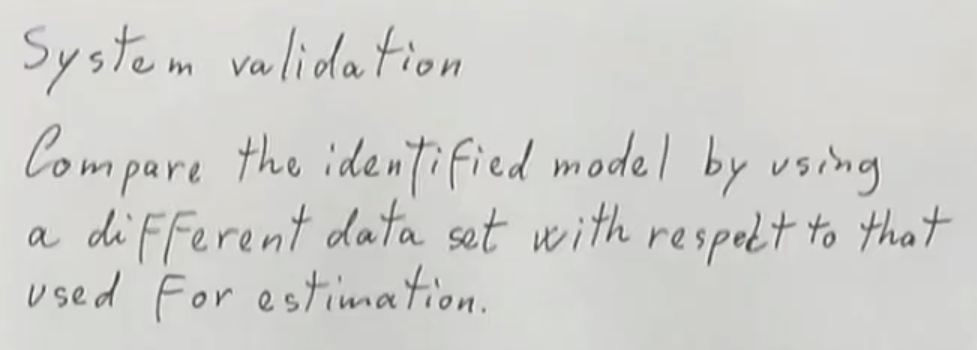 System validation
Compare the identified model by using
a different data set with respect to that
used for estimation.